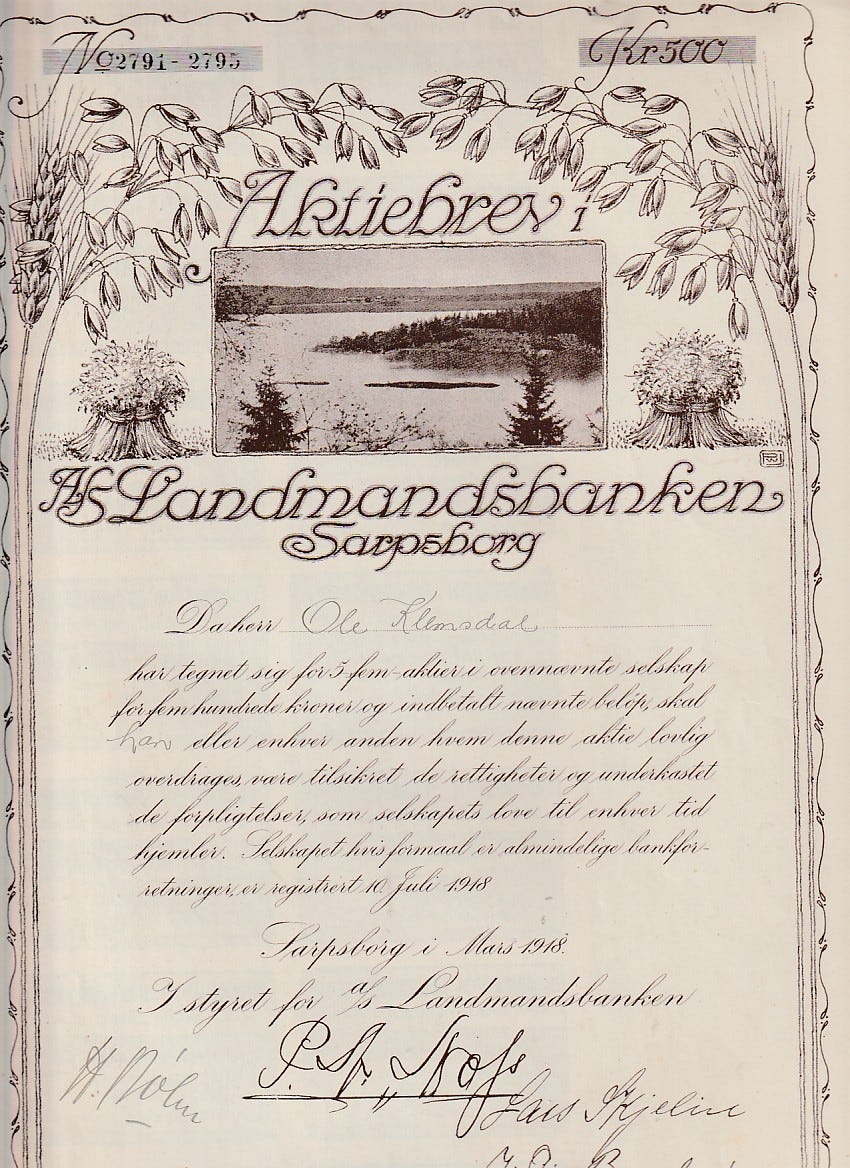 No 2791 - 2795
Kr 500
Aktiebrev i
A/S Landmandsbanken
Sarpsborg
Da herr Ole Klemsdal
har tegnet sig for 5-fem-aktier i ovennævnte selskap
for fem hundrede kroner og indbetalt nævnte beløp, skal
han eller enhver anden hvem denne aktie lovlig
overdrages, være tilsikret de rettigheter og underkastet
de forpligtelser, som selskapets love til enhver tid
hjemler. Selskapet hvis formaal er almindelige bankfor-
retninger, er registrert 10. Juli 1918
Sarpsborg i Mars 1918.
I styret for a/s Landmandsbanken
H. Bøhn
Lars Skjelin